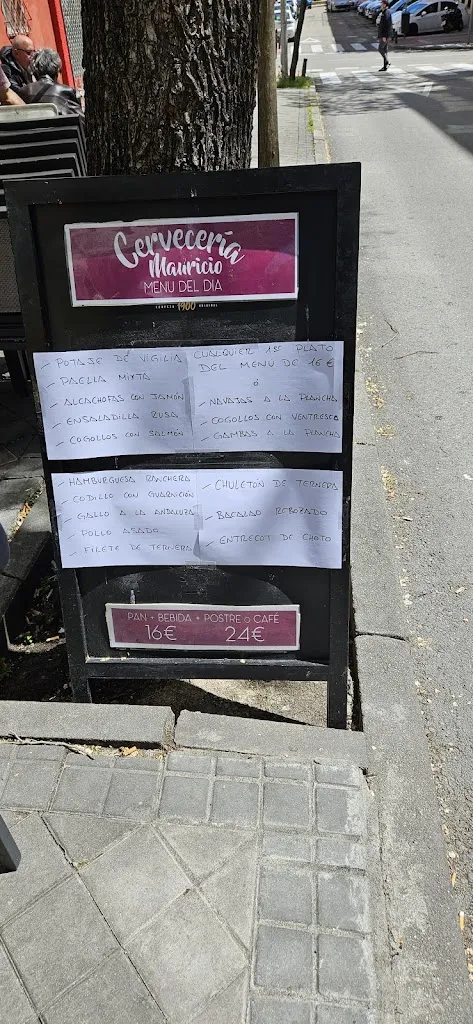 Cervecería
Mauricio
MENU DEL DIA
CERVEZA 1900 ORIGINAL
- POTAJE DE VIGILIA
- PAELLA MIXTA
- ALCACHOFAS CON JAMÓN
- ENSALADILLA RUSA
- COGOLLOS CON SALMÓN
CUALQUIER 1ER PLATO
DEL MENU DE 16 €
Ó
- NAVAJAS A LA PLANCHA
- COGOLLOS CON VENTRESCA
- GAMBAS A LA PLANCHA
- HAMBURGUESA RANCHERA
- CODILLO CON GUARNICIÓN
- GALLO A LA ANDALUZA
- POLLO ASADO
- FILETE DE TERNERA
- CHULETÓN DE TERNERA
- BACALAO REBOZADO
- ENTRECOT DE CHOTO
PAN + BEBIDA + POSTRE o CAFÉ
16€ 24€